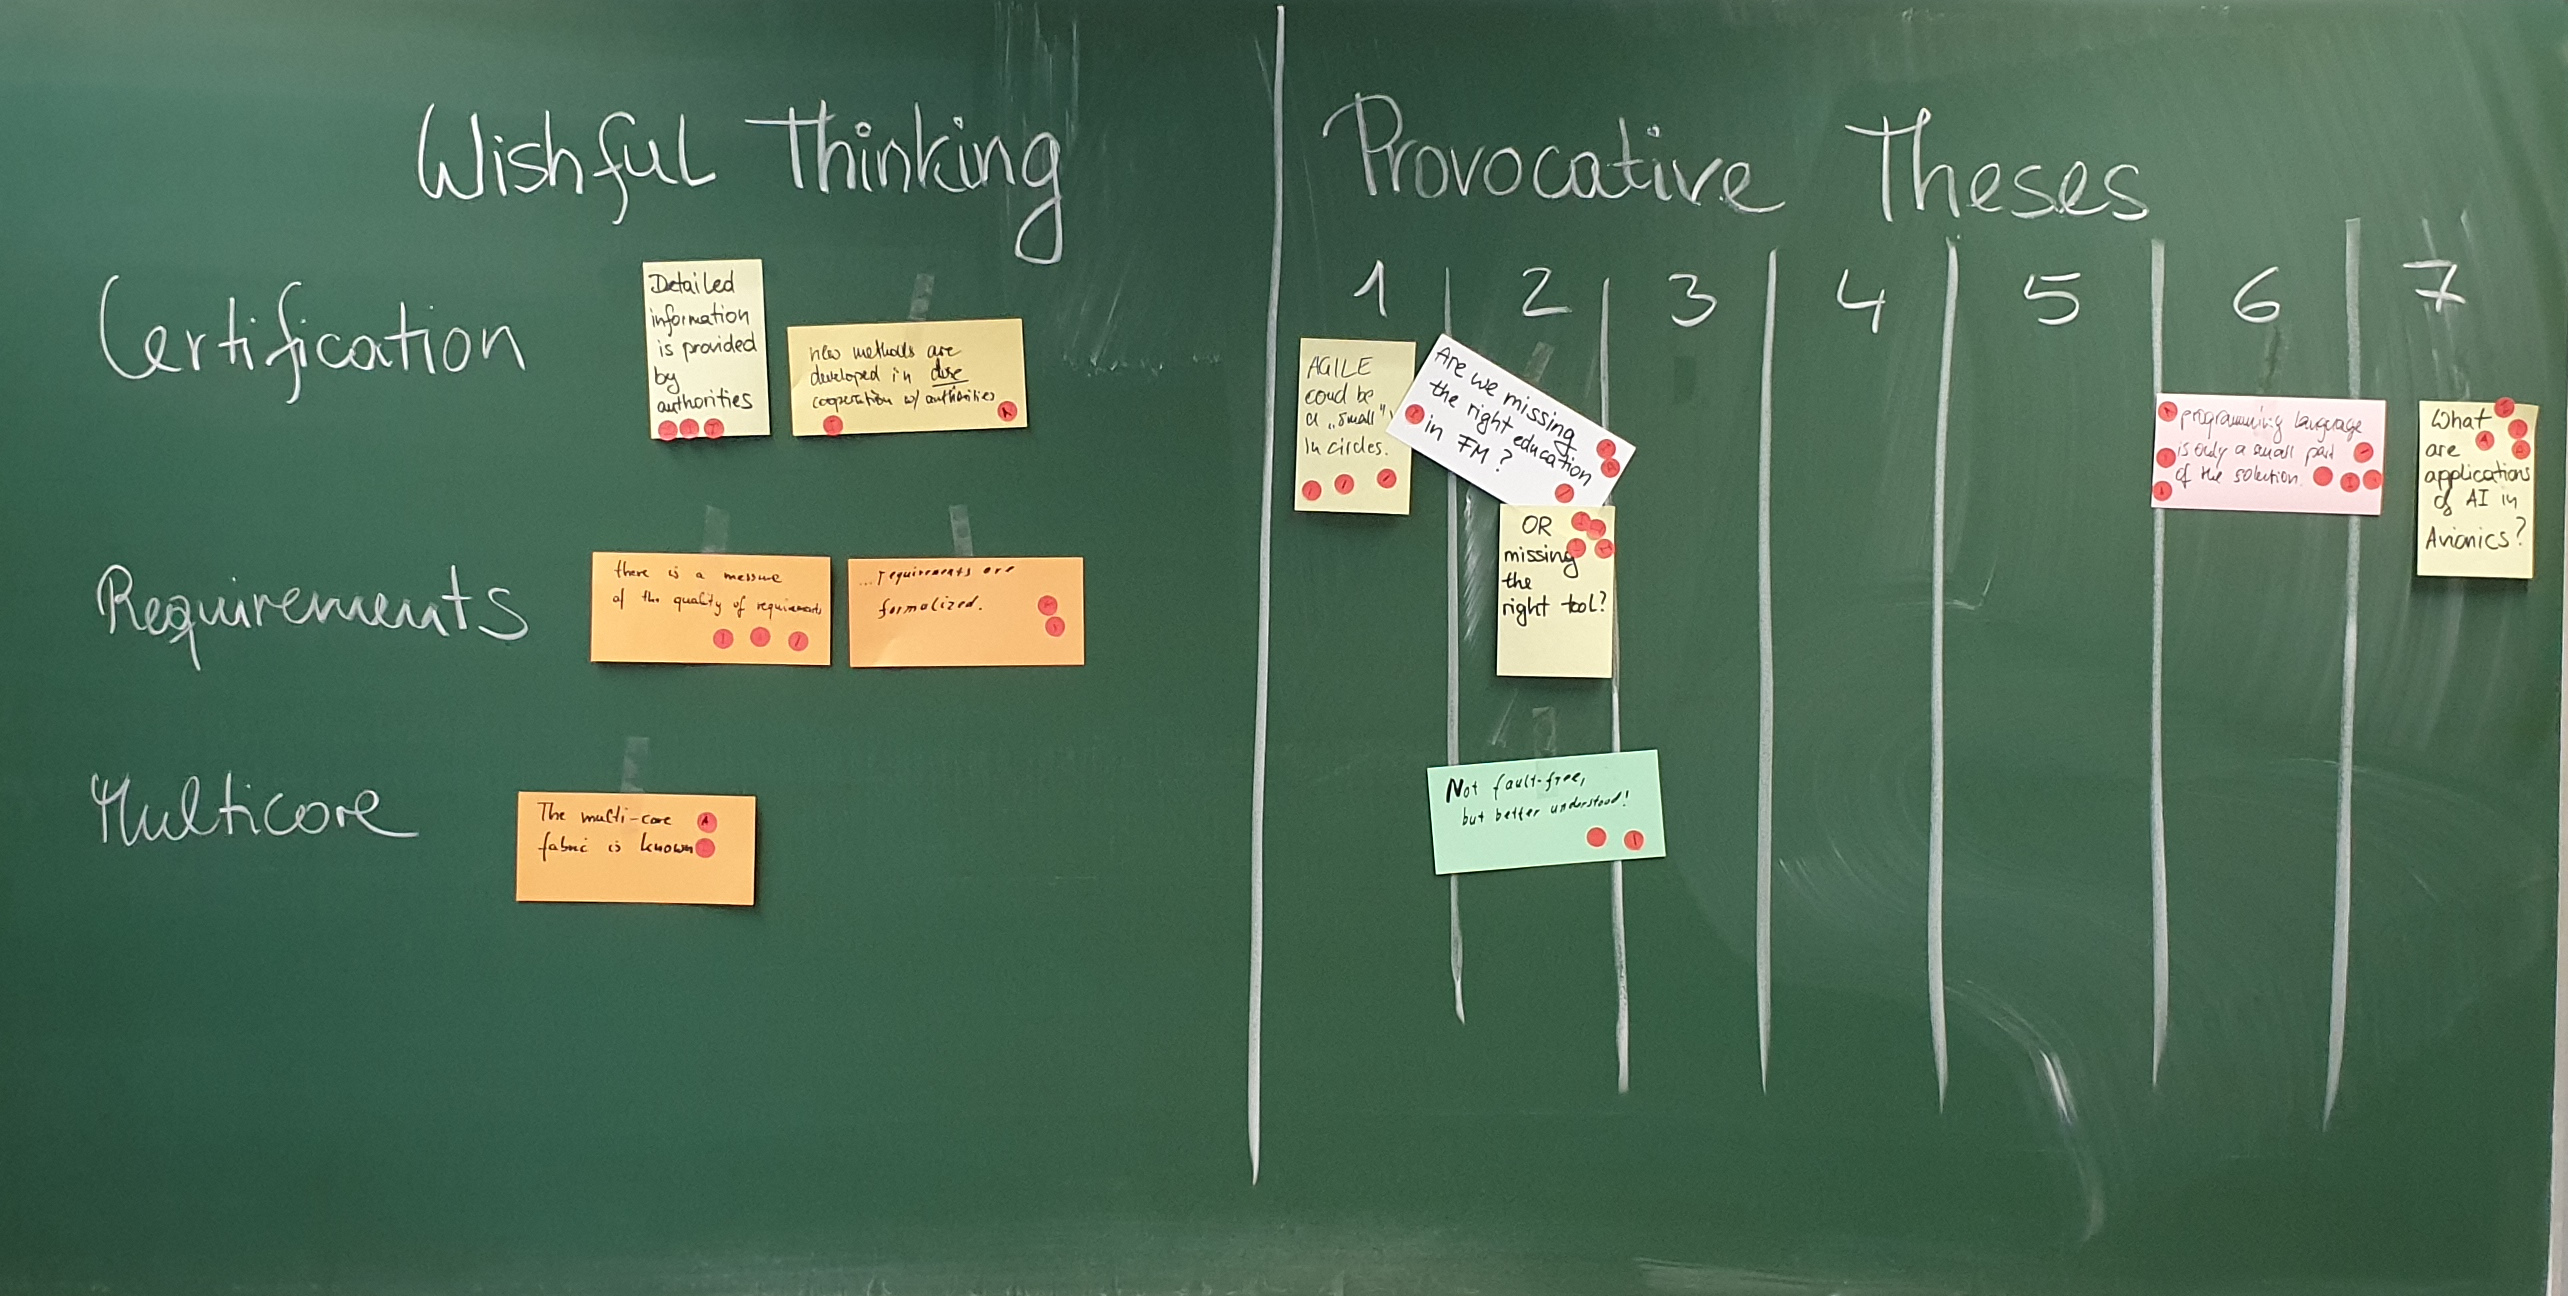 Wishful Thinking
Certification
Detailed
information
is provided
by
authorities
new methods are
developed in close
cooperation w/ authorities
Requirements
there is a messure
of the quality of requirements
...requirements are
formalized.
Multicore
The multi-core
fabric is known
Provocative Theses
1 2 3 4 5 6 7
AGILE
coud be
a „small"
in circles.
Are we missing
the right education
in FM?
OR
missing
the
right tool?
Not fault-free,
but better understood!
programming language
is only a small part
of the solution.
What
are
applications
of AI in
Avionics?